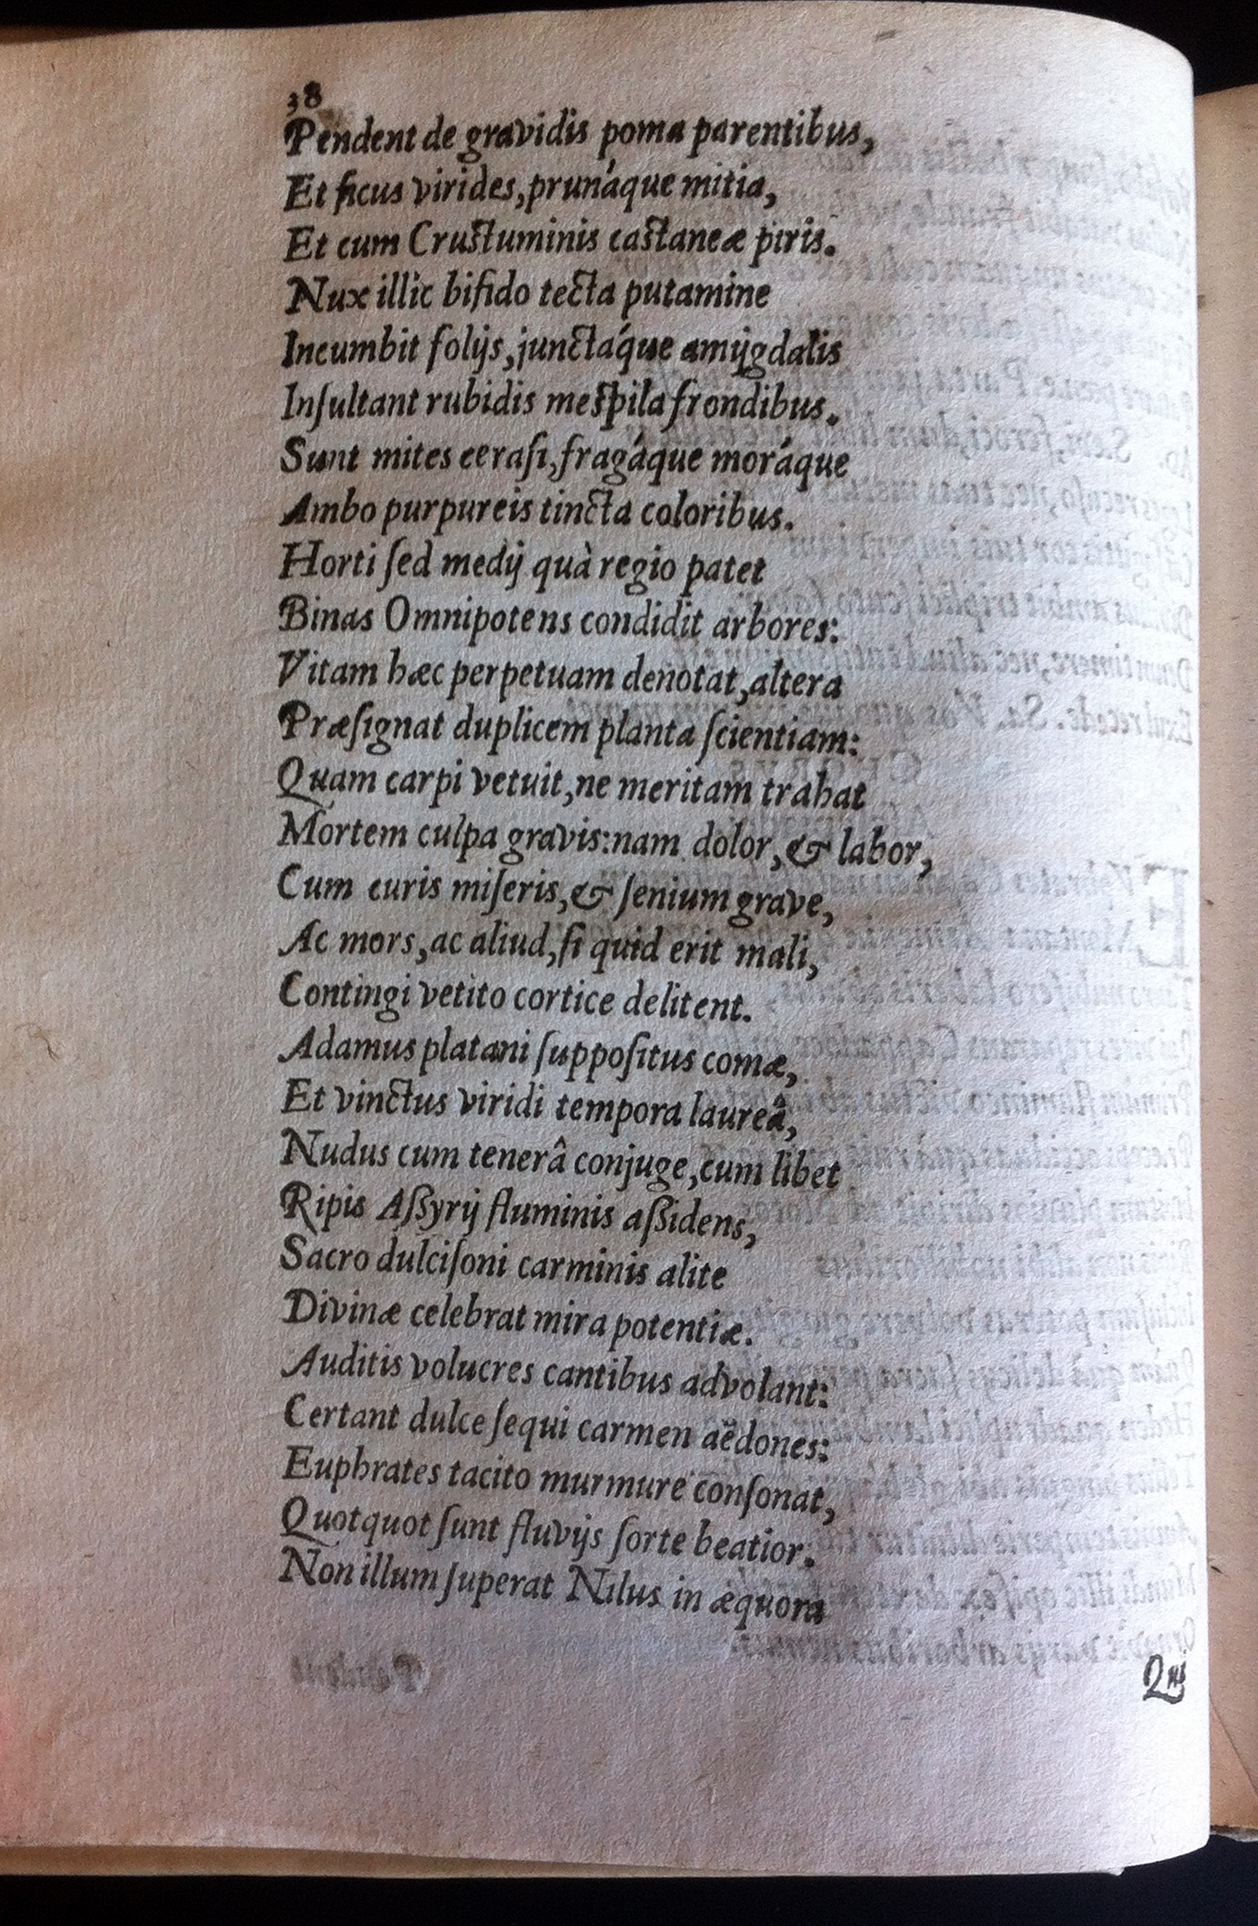 38
Pendent de gravidis poma parentibus,
Et ficus virides, prunáque mitia,
Et cum Crustuminis castaneæ piris.
Nux illic bifido tecta putamine
Incumbit folijs, junctáque amijgdalis
Insultant rubidis mespila frondibus.
Sunt mites cerasi, fragáque moráque
Ambo purpureis tincta coloribus.
Horti sed medij quà regio patet
Binas Omnipotens condidit arbores:
Vitam hæc perpetuam denotat, altera
Præsignat duplicem planta scientiam:
Quam carpi vetuit, ne meritam trahat
Mortem culpa gravis: nam dolor, & labor,
Cum curis miseris, & senium grave,
Ac mors, ac aliud, si quid erit mali,
Contingi vetito cortice delitent.
Adamus platani suppositus comæ,
Et vinctus viridi tempora laureâ,
Nudus cum tenerâ conjuge, cum libet
Ripis Assyrij fluminis assidens,
Sacro dulcisoni carminis alite
Divinæ celebrat mira potentiæ.
Auditis volucres cantibus advolant:
Certant dulce sequi carmen aëdones:
Euphrates tacito murmure consonat,
Quotquot sunt fluvijs sorte beatior.
Non illum superat Nilus in æquora